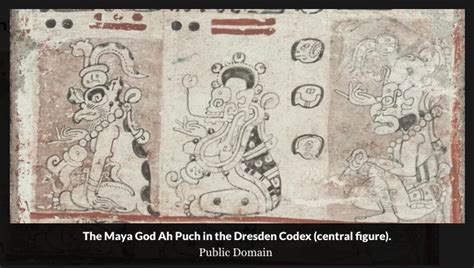 The Maya God Ah Puch in the Dresden Codex (central figure).
Public Domain